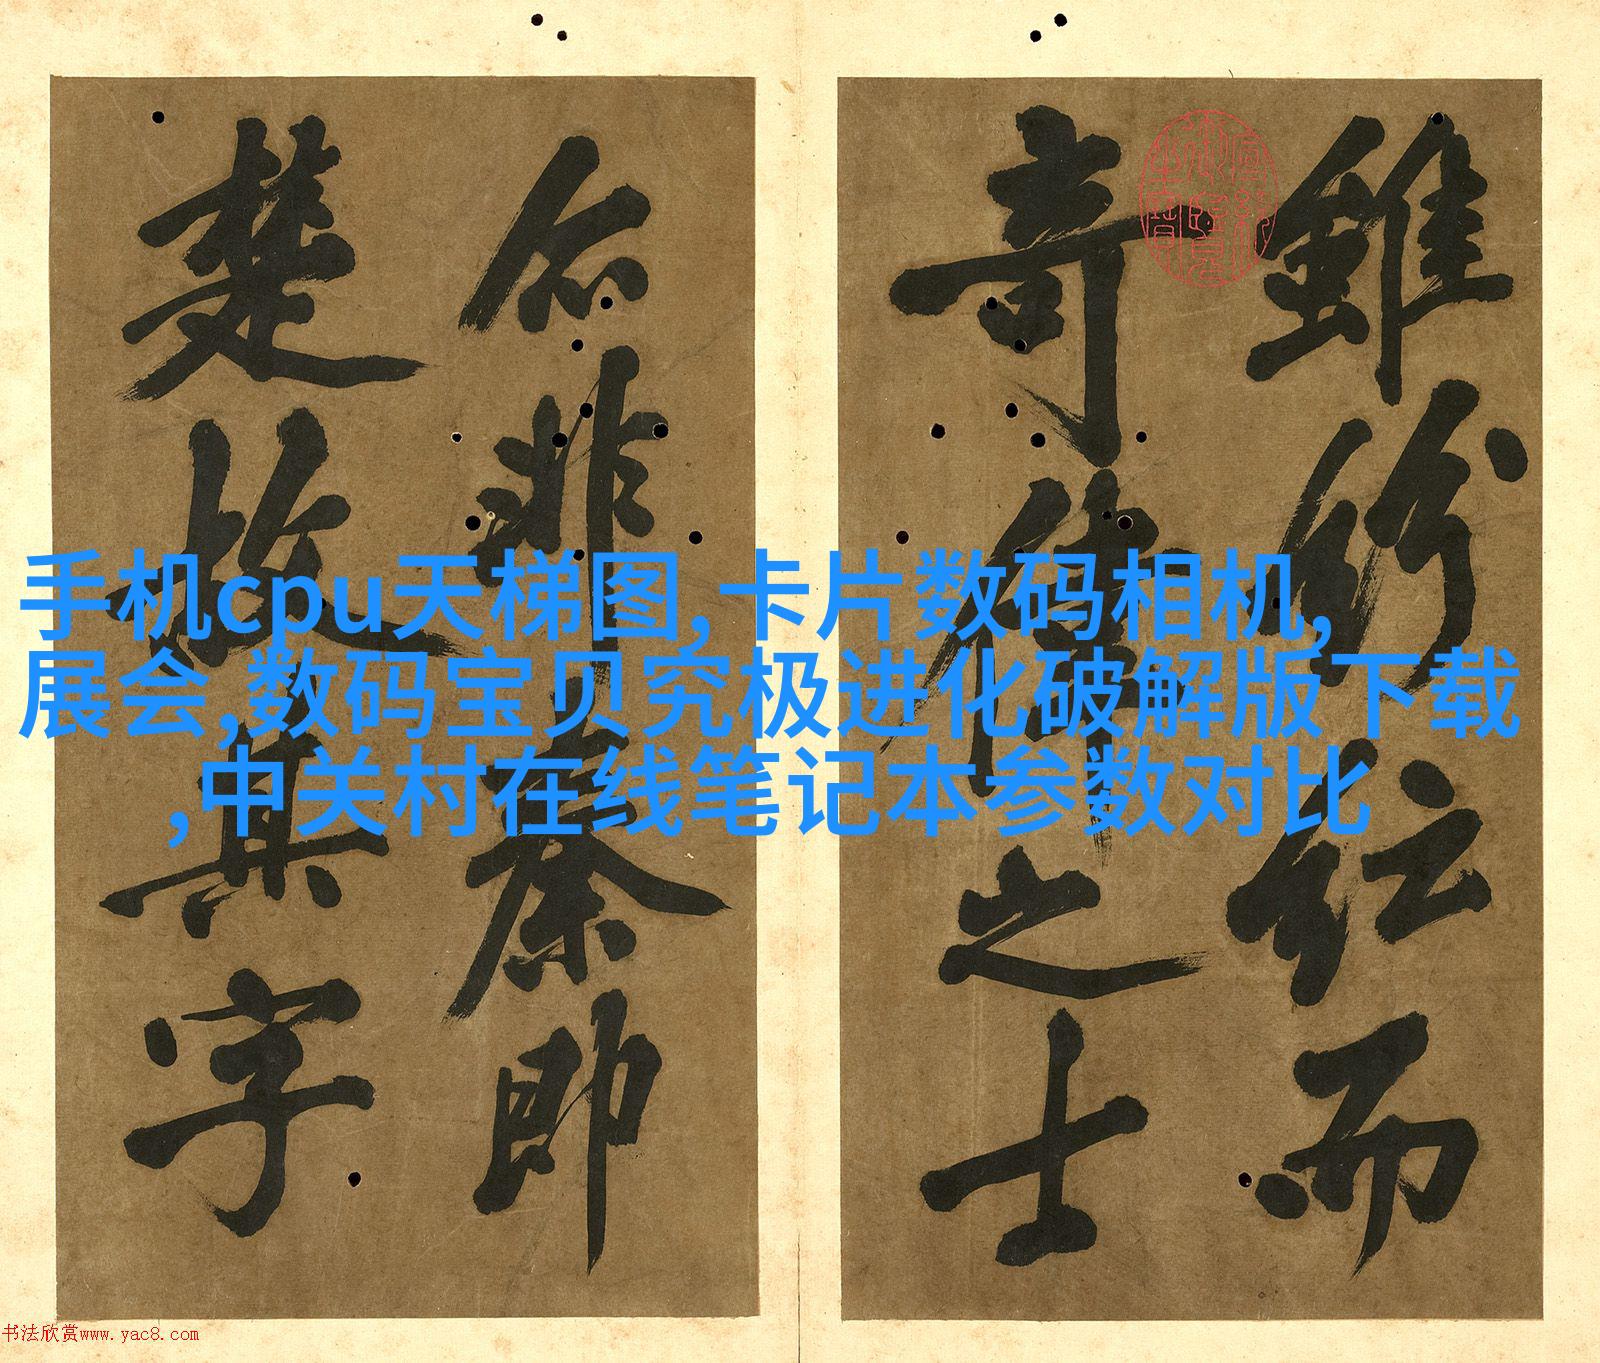 雖紛紜而
奇偉之士
不非秦即
楚故其字
手机cpu天梯图,卡片数码相机,
展会,数码宝贝究极进化破解版下载
,中关村在线笔记本参数对比
书法欣赏www.yac8.com